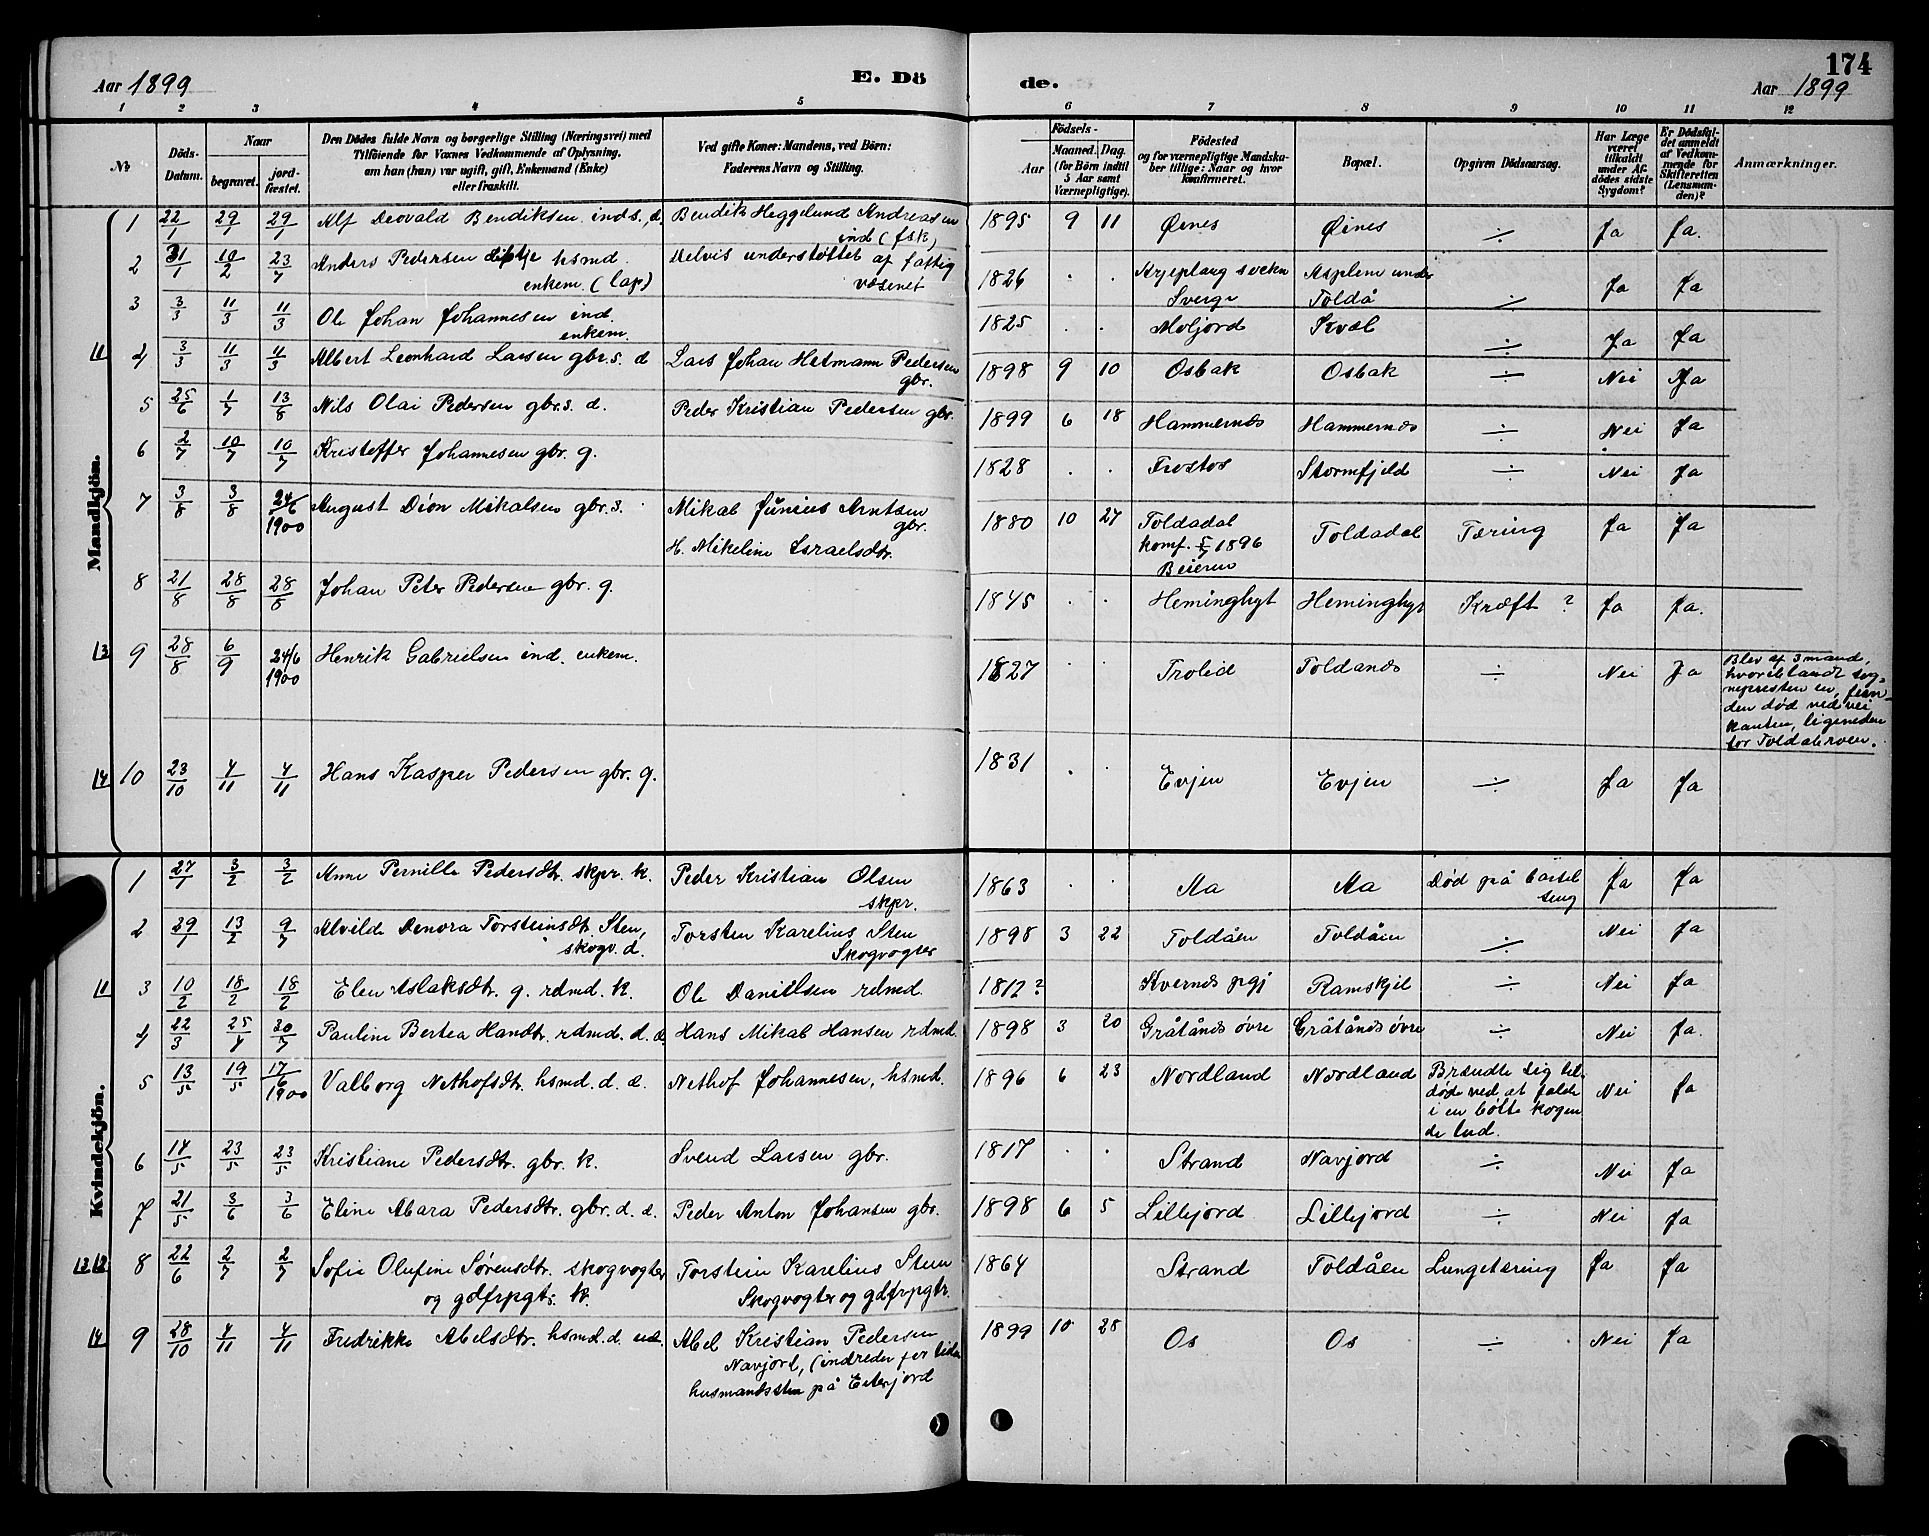 Aar 1899 E. Dö
de. Aar 1899 174
1 2 3 4 5 6 7 8 9 10 11 12
№ Döds-Datum. Naar begravet. jord-fæstet. Den Dödes fulde Navn og borgerlige Stilling (Næringsvei) med Tilföiende for Voxnes Vedkommende af Oplysning, om han (hun) var ugift, gift, Enkemand (Enke) eller fraskilt. Ved gifte Koner: Mandens, ved Börn: Faderens Navn og Stilling. Födsels- Aar Maaned. Dag. (for Börn indtil 5 Aar samt Værnepligtige). Födested og for værnepligtige Mandskaber tillige: Naar og hvor konfirmeret. Bopæl. Opgiven Dödsaarsag. Har Læge været tilkaldt under Afdödes sidste Sygdom? Er Dödsfaldet anmeldt af Vedkommende for Skifteretten (Lensmanden)? Anmærkninger.
Mandkjön.
1 22/1 29/1 29/1 Alf Deovald Bendiksen inds. d. Bendik Heggelund Andreasen 1895 9 11 Øines Øines ÷ Ja Ja.
ind (fsk)
2 31/1 10/2 23/7 Anders Pedersen hsmd. Delvis understøttet af fattig 1826 . . Arjeplaug sockn Asplem under ÷ Ja Ja
enkem. (lap) væsenet Sverge Toldå
3 3/3 11/3 11/3 Ole Johan Johannesen ind. 1825 . . Moljord Kvæl ÷ Ja Ja
enkem.
11 4 3/3 11/3 11/3 Albert Leonhard Larsen gbr.s. d Lars Johan Hetmann Pedersen 1898 9 10 Osbak Osbak ÷ Nei Ja
gbr.
5 25/6 1/7 13/8 Nils Olai Pedersen gbr.s. d. Peder Kristian Pedersen gbr. 1899 6 18 Hammernæs Hammernæs ÷ Nei Ja
6 2/7 10/7 10/7 Kristoffer Johannesen gbr. g. 1828 . . Trostos Stormfjeld ÷ Nei Ja
7 3/8 3/8 24/6 1900 August Dion Mikalsen gbr.s. Mikal Junius Arntsen 1880 10 27 Toldadal Toldadal Tæring Ja Ja
gbr. komf. 5/7 1896
H. Mikeline Israelsdtr. Beieren
8 21/8 28/8 28/8 Johan Peter Pedersen gbr. g. 1845 . . Heminghyt Heminghyt Kræft ? Ja Ja.
13 9 28/8 6/9 24/6 1900 Henrik Gabrielsen ind. enkem. 1827 . . Trolid Toldanæs ÷ Nei Ja Blev af 3 mand,
hvoriblandt sog-
nepresten en, fun-
den død ved vei
kanten, ligeneden
for Toldaleroen.
14 10 23/10 4/11 4/11 Hans Kasper Pedersen gbr. g. 1831 . Evjen Evjen ÷ Ja Ja
Kvindekjön.
1 27/1 3/2 3/2 Anne Pernille Pedersdtr. skpr. k. Peder Kristian Olsen 1863 . . Aa Aa Død på barsel Ja Ja
skpr. seng
2 29/1 13/2 9/7 Alvilde Denora Torsteinsdtr. Sten, Torsten Karelius Sten 1898 3 22 Toldåen Toldåen ÷ Nei Ja
skogv. d. Skogvogter
11 3 10/2 18/2 18/2 Elen Aslaksdtr. g. rdmd. k. Ole Danielsen rdmd. 1812? Kvernes pgj Ramskjel ÷ Nei Ja
4 22/3 25/4 20/7 Pauline Bertea Hansdtr. rdmd. d. d. Hans Mikal Hansen rdmd. 1898 3 20 Gråtånæs øvre Gråtånæs øvre ÷ Nei Ja.
5 13/5 19/5 17/6 1900 Valborg Nethofsdtr. hsmd. d. d. Nethof Johannesen, hsmd. 1896 6 23 Nordland Nordland Brændte sig til Nei Ja
døde ved at falde
i en bøtte kogen
de lud.
6 14/5 23/5 23/5 Kristiane Pedersdtr. gbr. k. Svend Larsen gbr. 1817 . . Strand Navjord ÷ Nei Ja
7 21/5 3/6 3/6 Eline Abara Pedersdtr. gbr. d. d. Peder Anton Johansen gbr. 1898 6 5 Lillejord Lillejord ÷ Nei Ja
8 22/6 2/7 2/7 Sofie Olufine Sørensdtr. skogvogter Torstein Karelius Steen 1864 Strand Toldåen Lungetæring Ja Ja
og gdfrpgts. k. Skogvogter og gdfrpgtr.
14 9 28/10 4/11 4/11 Fredrikke Abelsdtr. hsmd. d. Abel Kristian Pedersen 1899 10 28 Os Os ÷ Nei Ja
Navjord, (indreder for tiden
husmandssten på Eiterjord